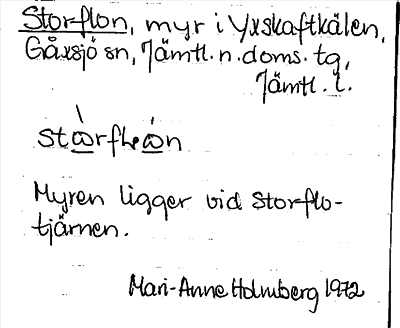 Storflon, myr i Yxskaftkälen,
Gåxsjö sn, Jämtl. n. doms. tg,
Jämtl. l.
Myren ligger vid Storflo-
tjärnen.
Mari-Anne Holmberg 1972